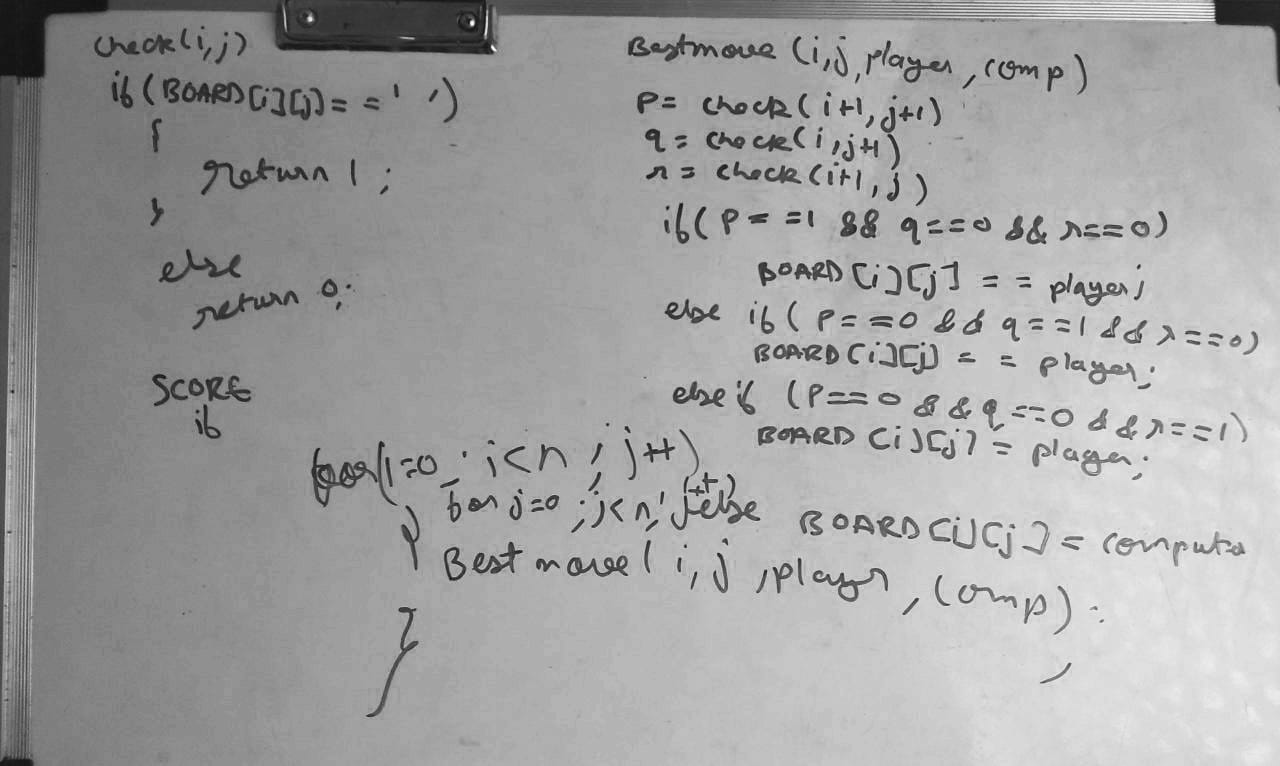 check(i,j)
if(BOARD[i][j]==' ')
{
return 1;
}
else
return 0;
SCORE
if
Bestmove(i,j,player,comp)
P= check(i+1,j+1)
q= check(i,j+1)
r= check(i+1,j)
if(P==1 && q==0 && r==0)
BOARD[i][j]== player;
else if(P==0 && q==1 && r==0)
BOARD[i][j]== player;
else if (P==0 && q==0 && r==1)
BOARD[i][j]= player;
else BOARD[i][j]= computer
for(i=0; i<n; j++)
for j=0; j<n; j++)
{
Bestmove(i,j,player,comp);
}